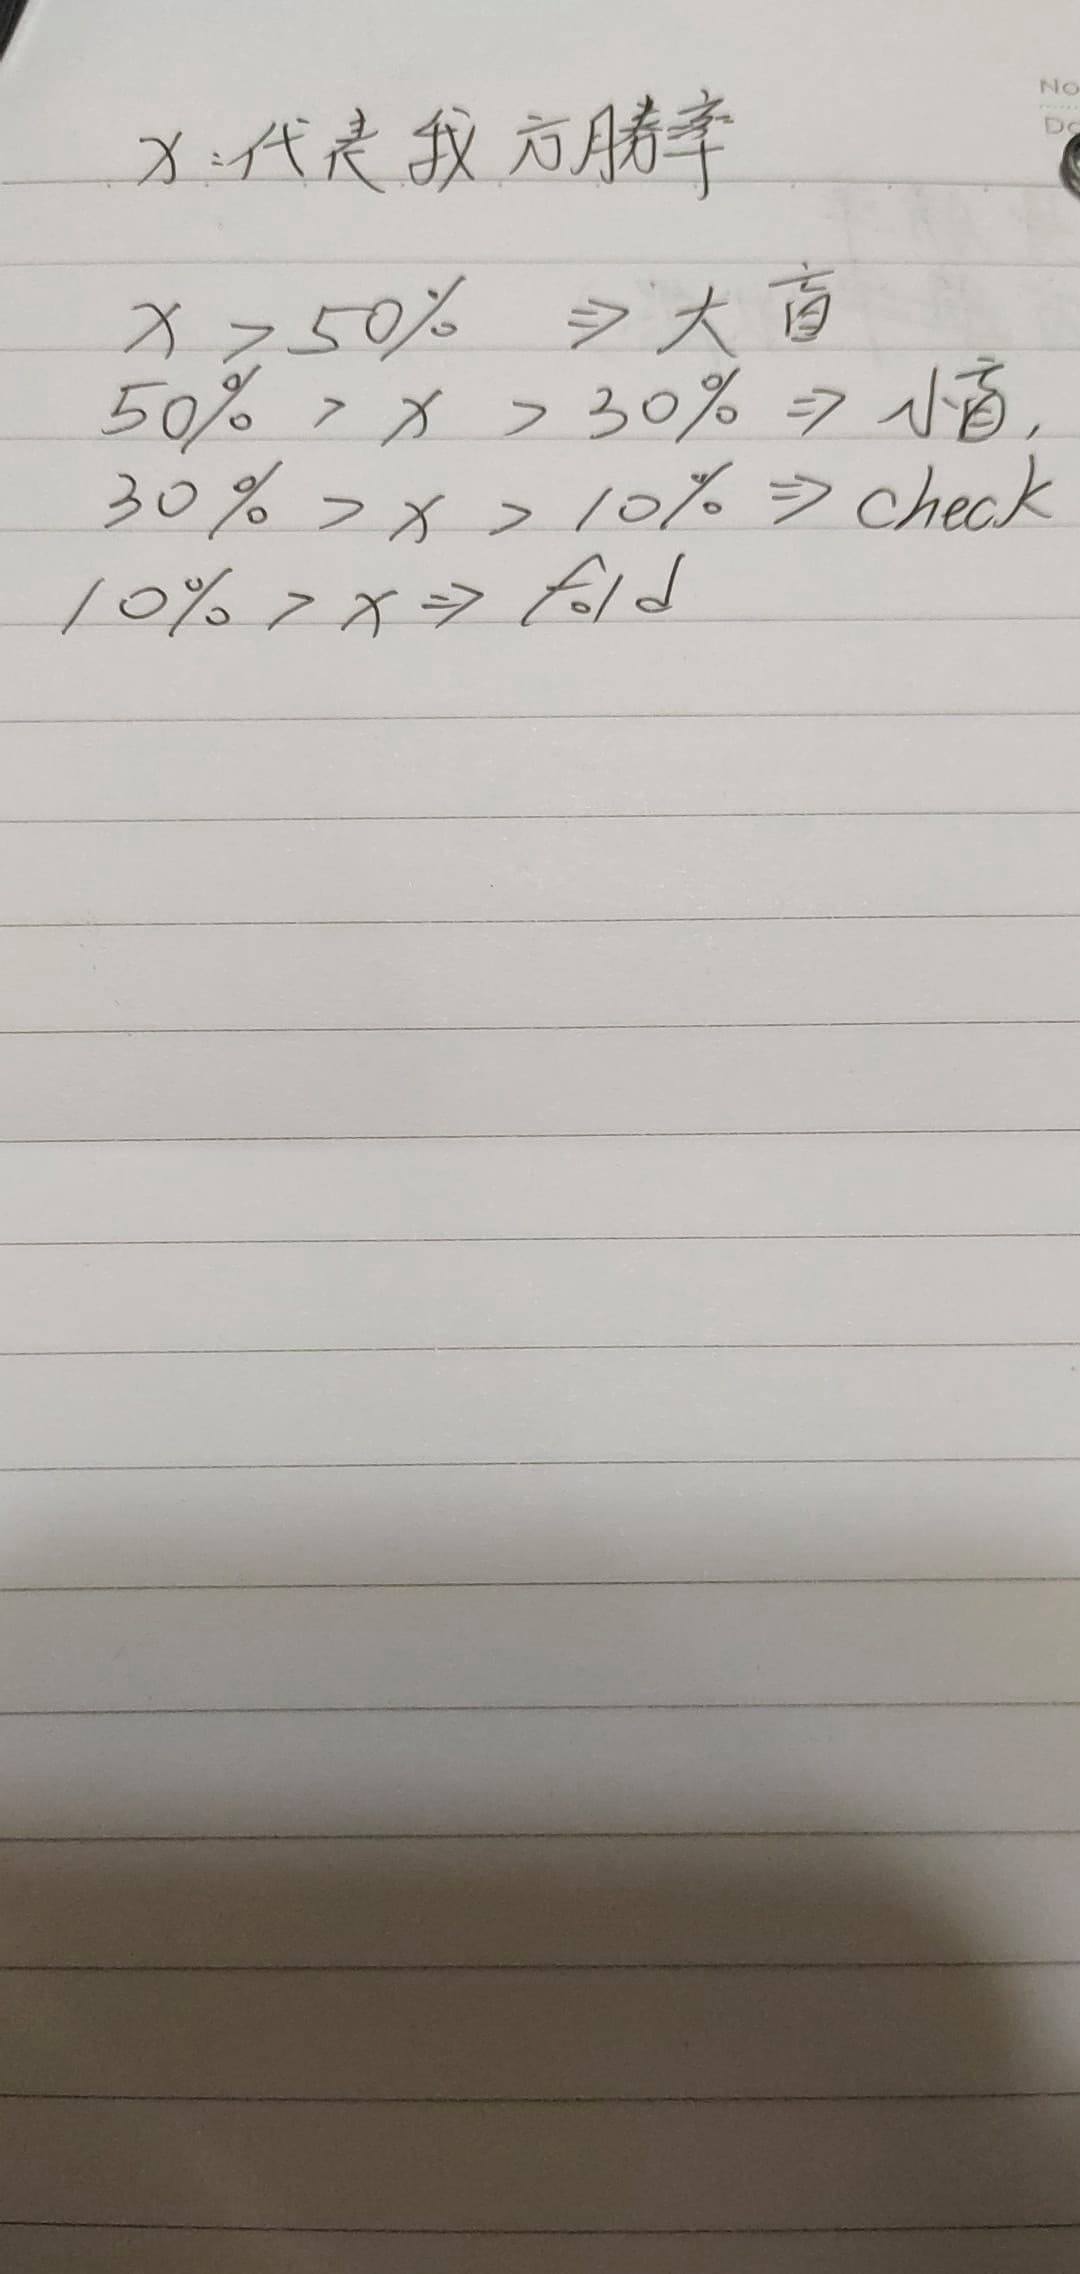 No
x:代表我方勝率
x > 50% ⇒ 大盲
50% > x > 30% ⇒ 小盲,
30% > x > 10% ⇒ check
10% > x ⇒ fold